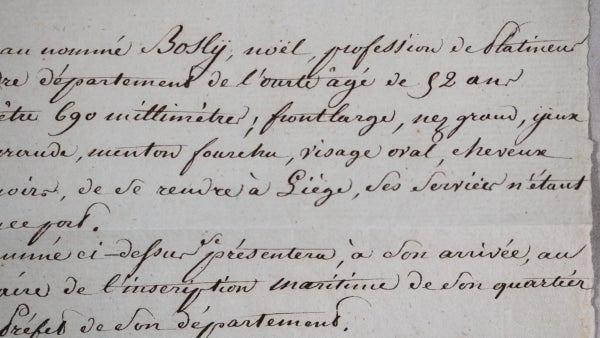 au nommé Boslÿ, noël, profession de Platineur
dre département de l'ourte âgé de 52 ans
être 690 millimètres; front large, nez grand, yeux
menton fourchu, visage oval, cheveux
noirs, de se rendre à Liége, ses services n'étant
ce port.
ommé ci-dessus se présentera, à son arrivée, au
aire de l'inscription maritime de son quartier
Préfet de son département.